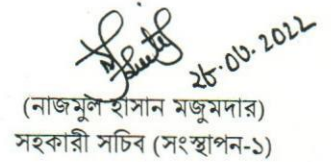 ২৮.০৬.২০২২
(নাজমুল হাসান মজুমদার)
সহকারী সচিব (সংস্থাপন-১)